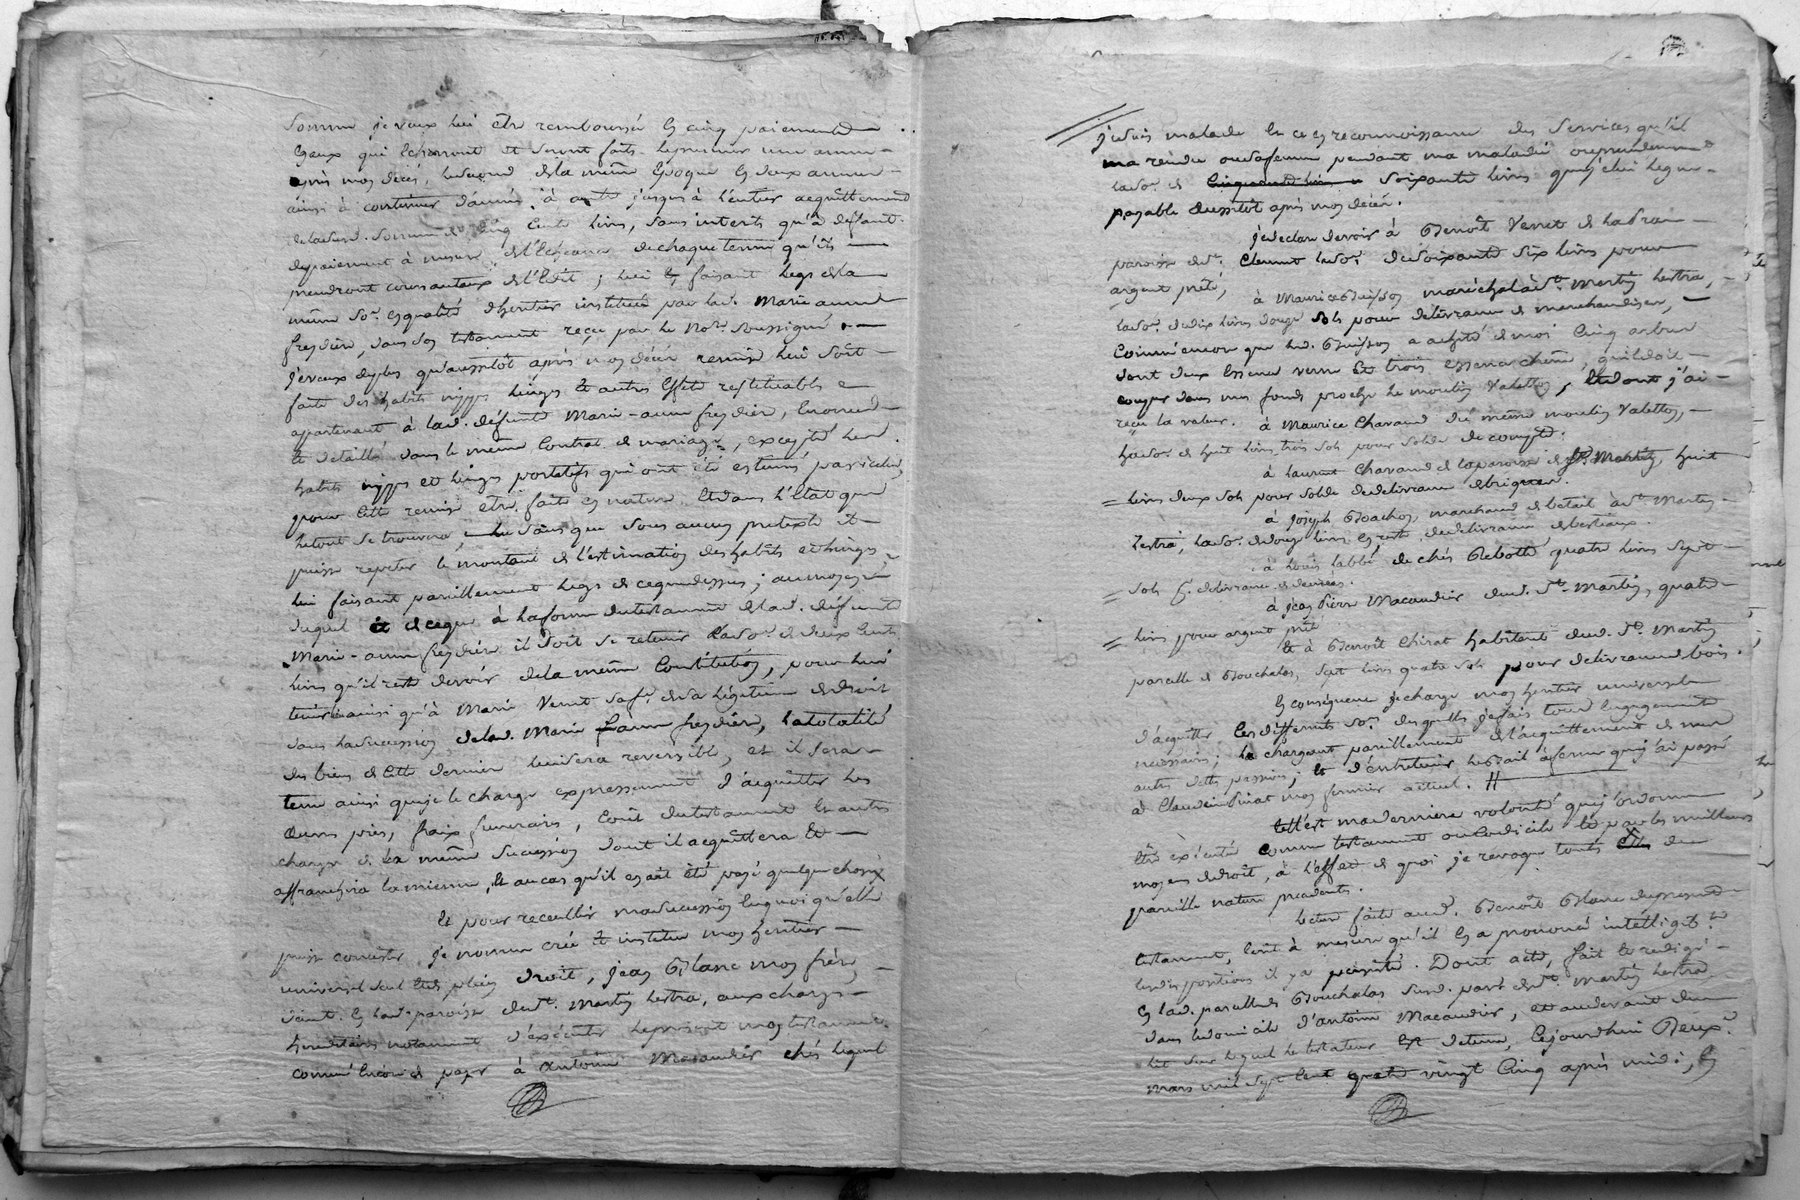 Somme je veux lui être remboursée en cinq paiements
Egaux qui écherront et seront faits le premier une année
après mon décès, le second de la même Epoque en deux années
ainsi à continuer d'année à autre jusques à l'entier acquittement
de lad. somme de cinq Cents livres, sans interets qu'à deffaut
de paiement à mesure de l'Echeance de chaque terme qu'ils
prendront cours au taux de l'Edit; lui en faisant legs de la
même so.e en qualité d'heritier institué par lad. Marie anne
freydiere, dans son testament reçu par le No.re soussigné
je veux de plus qu'aussitôt après mon décès remise lui soit
faite des habits nippes linges et autres Effets restituables
appartenant à lad. défunte Marie-anne freydiere, Enoncés
et détaillés dans le même Contrat de mariage, excepté les
habits nippes et linges portatifs qui ont été estimés par icelui,
pour Cette remise être faite en nature Et dans l'Etat que
le tout se trouvera, sans que sous aucun pretexte il
puisse repeter le montant de l'estimation des habits et linges,
lui faisant pareillement legs de ce que dessus; au moyen
duquel et de ce que à la forme du testament de lad. défunte
Marie-anne freydiere il doit se retenir la so.e de deux Cents
livres qu'il reste devoir de la même Constitution, pour lui
tenir ainsi qu'à Marie Verret sa fe. de sa légitime de droit
dans la succession de lad. Marie anne freydiere, la totalité
des biens de cette derniere lui sera reversible, et il sera
tenu ainsi que je le charge expressement d'acquitter les
Œuvres pies, fraix funeraires, Coût du testament Et autres
charges de la même succession dont il acquittera Et
affranchira la mienne, Et au cas qu'il en ait été payé quelque chose
Et pour recueillir ma succession En quoi qu'elle
puisse consister je nomme crée et institue mon heritier
universel seul Et de plein droit, jean Blanc mon frère,
demt. en lad. paroisse de St. Martin lestra, aux charges
hereditaires notamment d'exécuter le present mon testament
comme Encore de payer à antoine Macaudier chés lequel
je suis malade Et ce en reconnoissance des services qu'il
m'a rendu ou sa femme pendant ma maladie
la so.e de cinquante livres soixante livres que je lui legue
payable aussitôt après mon décès.
je declare devoir à Benoît Verret de la
paroisse de St. Clement la so.e de soixante Six livres pour
argent prêté,
à Maurice Buisson maréchal à St. Martin lestra,
la so.e de dix livres douze sols pour délivrance de marchandises,
Comme encore que led. Buisson a acheté de moi Cinq arbres
dont deux Essence verne Et trois Essence chêne, qu'il doit
couper dans mes fonds proche le moulin Valetton, Et dont j'ai
reçu la valeur. à Maurice Chavand du même moulin Valetton,
la so.e de huit livres trois sols pour solde de compte.
à laurent Chavand de la paroisse de St. Martin, huit
livres deux sols pour solde de delivrance de briques.
à joseph Boachon, marchand de betail à St. Martin
lestra, la so.e de douze livres en reste de delivrance de bestiaux.
à louis labbé de chés Rebotte quatre livres sept
sols pr. delivrance de denrées.
à jean Pierre Macaudier dud. St. Martin, quatre
livres pour argent prêté
Et à Benoît Chirat habitant dud. St. Martin
parcelle de Bouchalas, sept livres quatre sols pour delivrance de bois.
En conséquence je charge mon heritier universel
d'acquitter les différentes so.es desquelles je fais tous Engagements
necessaires; le chargeant pareillement de l'acquittement de mes
autres dettes passives; et d'entretenir le bail à ferme que j'ai passé
à Claude Pinat mon fermier actuel. //
telle est ma derniere volonté que j'ordonne
Être exécutée comme testament ou Codicile et par les meilleurs
moyens de droit, à l'effet de quoi je revoque touts de
pareille nature precedents.
lecture faite aud. Benoît Blanc du present
testament, Ecrit à mesure qu'il En a prononcé intelligibt.
les dispositions il y a persisté. Dont acte, fait et redigé
En lad. parcelle de Bouchalas susd. parsse de St. Martin lestra
dans le domicile d'antoine Macaudier, et au devant du
lit sur lequel le testateur Est detenu, Cejourd'hui Deux.e
mars mil sept Cent quatre vingt Cinq après midi, En